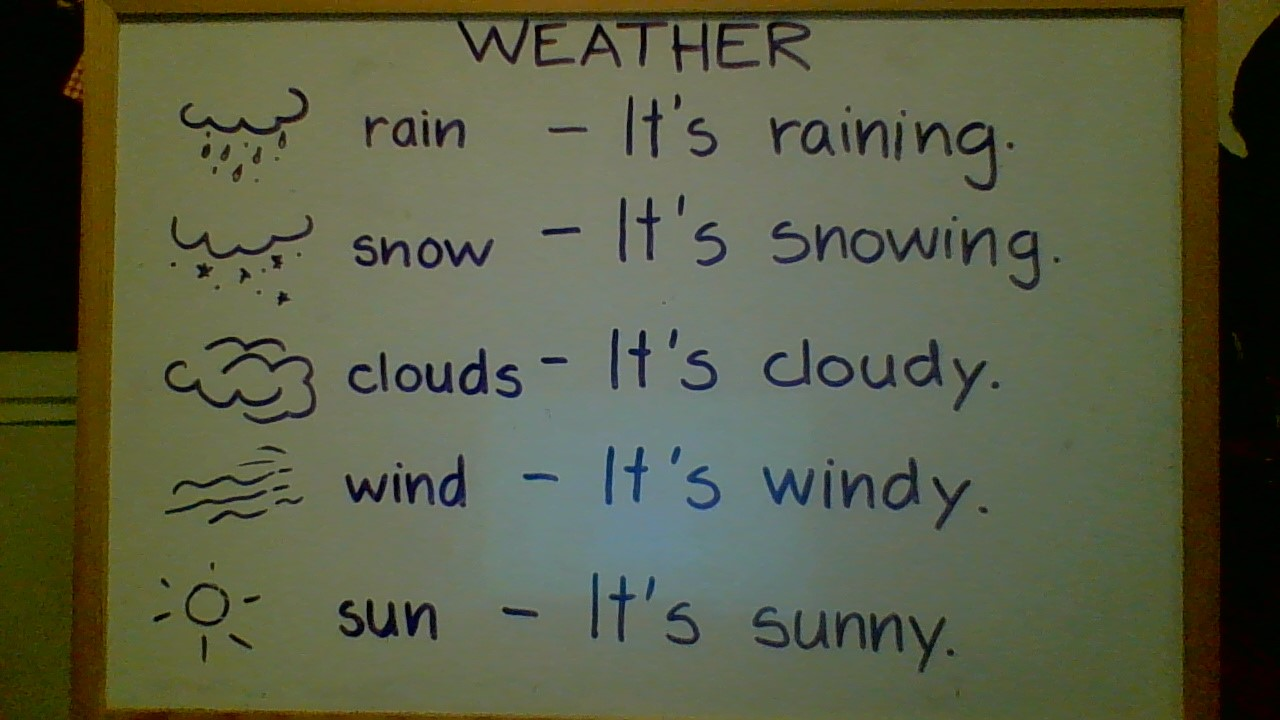 WEATHER
rain - It's raining.
snow - It's snowing.
clouds - It's cloudy.
wind - It's windy.
sun - It's sunny.